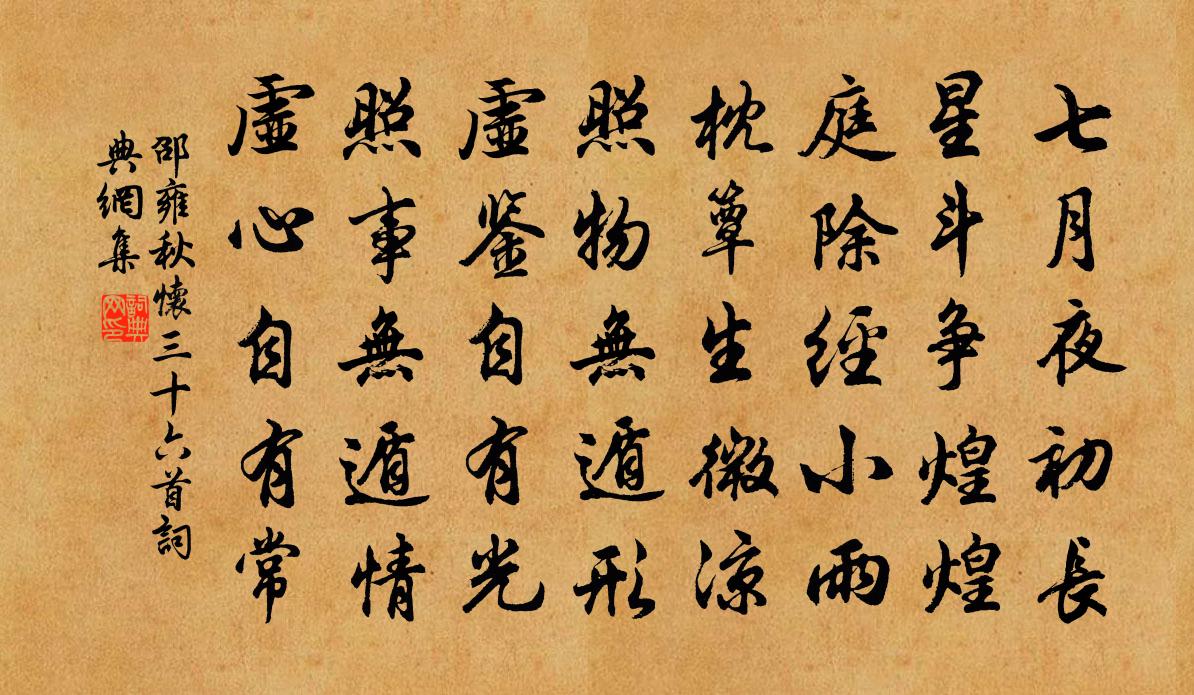 七月夜初長
星斗争煌煌
庭除經小雨
枕簟生微涼
照物無遁形
虛鉴自有光
照事無遁情
虛心自有常
邵雍秋懷三十六首詞
典網集
詞典
网印